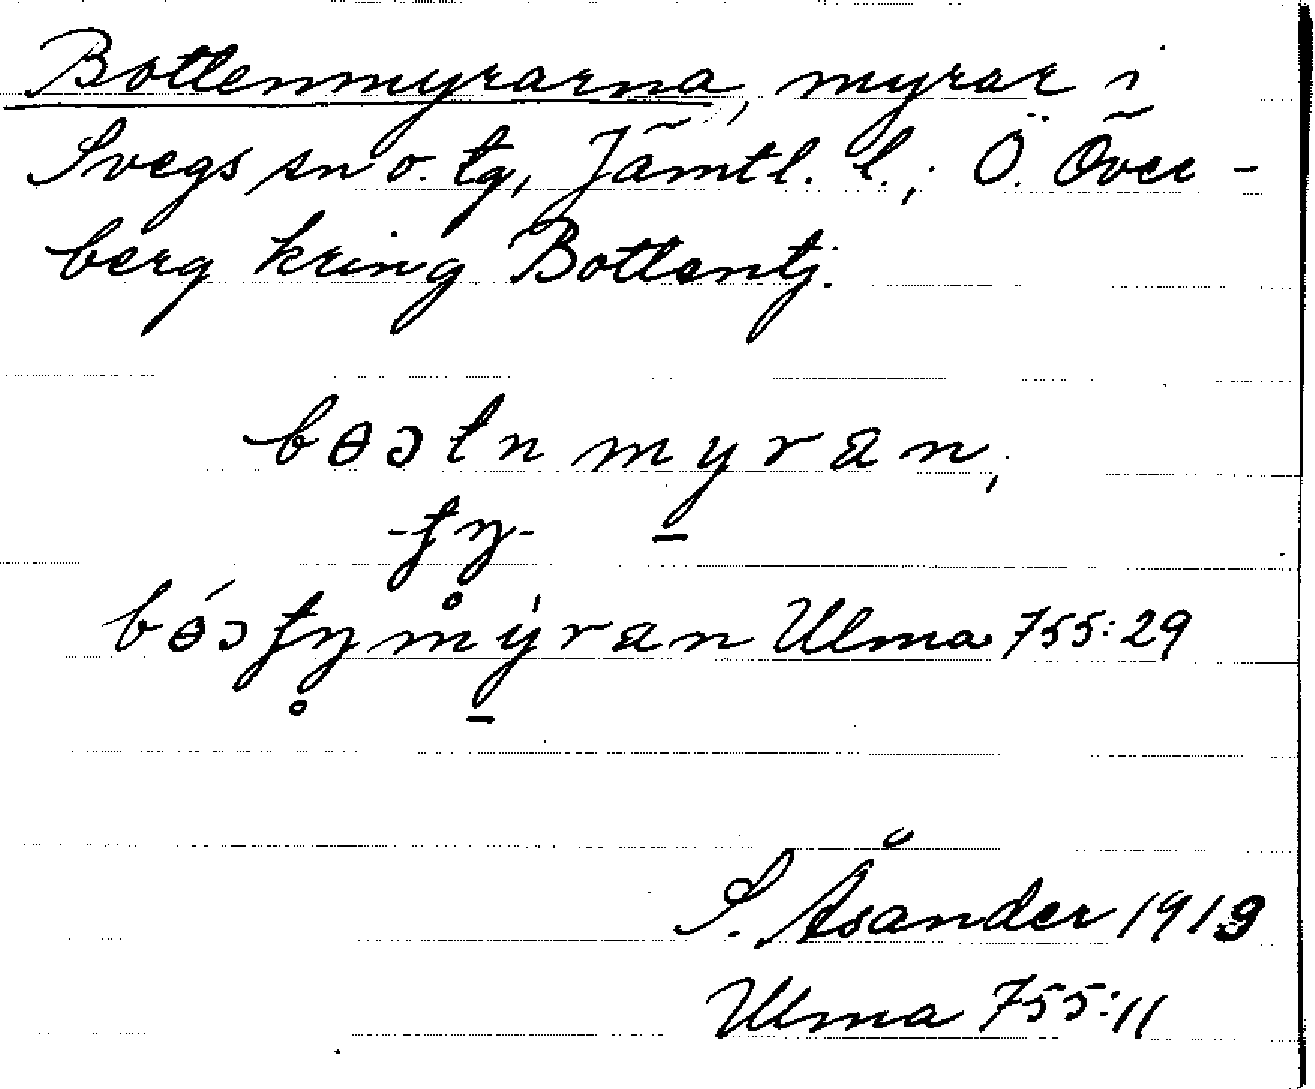 Bottenmyrarna, myrar i
Svegs sn o. tg, Jämtl. l.; Ö. Över-
berg kring Bottentj.
bɵɔtn myran,
bɵ́ɔ myran Ulma 755:29
S. Åsander 1919
Ulma 755:11